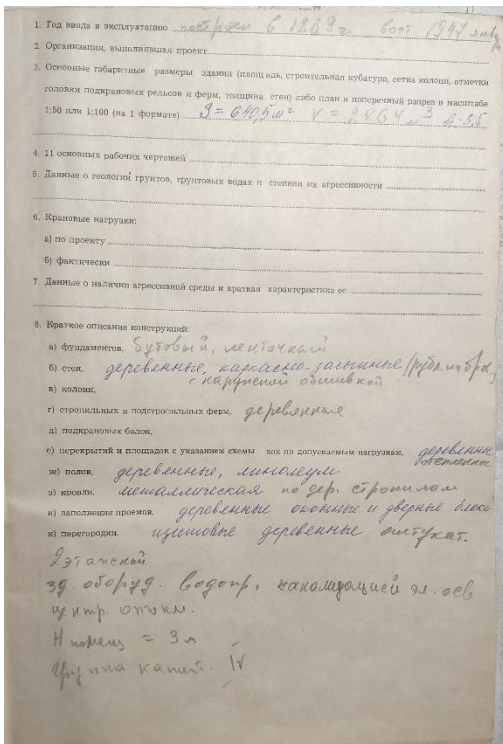 1. Год ввода в эксплуатацию построен в 1839 г. вост 1997
2. Организация, выполнившая проект
3. Основные габаритные размеры здания (площадь, строительная кубатура, сетка колонн, отметки
головки подкрановых рельсов и ферм, толщина стен) либо план и поперечный разрез в масштабе
1:50 или 1:100 (на 1 формате) S = 640,5 м² V = 2264 м³ h-3,5
4. 11 основных рабочих чертежей
5. Данные о геологии грунтов, грунтовых водах и степени их агрессивности
6. Крановые нагрузки:
а) по проекту
б) фактически
7. Данные о наличии агрессивной среды и краткая характеристика ее
8. Краткое описание конструкций:
а) фундаментов, бутовый, ленточный
б) стен, деревянные, каркасно-засыпные
с наружной обшивкой
в) колонн,
г) стропильных и подстропильных ферм, деревянные
д) подкрановых балок,
е) перекрытий и площадок с указанием схемы по допускаемым нагрузкам, деревянные
утепленные
ж) полов, деревянные, линолеум
з) кровли, металлическая по дер. стропилам
и) заполнения проемов, деревянные оконные и дверные блоки
к) перегородки. деревянные оштукат.
2 этажный
зд. оборуд. водопр, канализацией эл. осв
центр. отопл.
H помещ = 3 м
Группа капит. IV